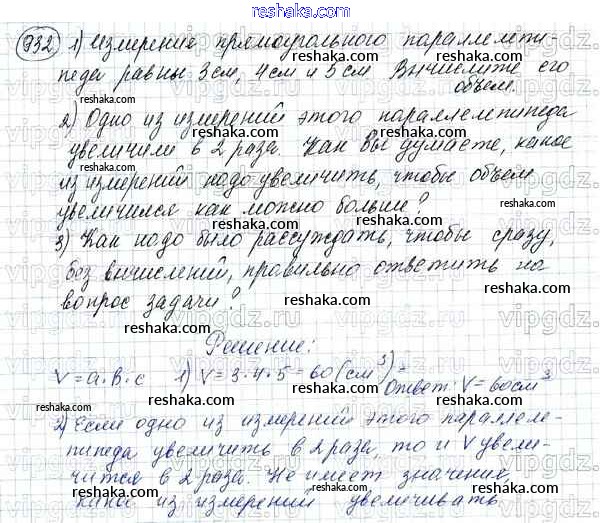 reshaka.com
932) 1) Измерения прямоугольного параллелепи-
педа равны 3см, 4см и 5см Вычислите его
объем.
2) Одно из измерений этого параллелепипеда
увеличили в 2 раза. Как вы думаете, какое
из измерений надо увеличить, чтобы объем
увеличился как можно больше?
3) Как надо было рассуждать, чтобы сразу,
без вычислений, правильно ответить на
вопрос задачи?
Решение:
V=a·b·c 1) V=3·4·5=60(см³)
Ответ: V=60см³
2) Если одно из измерений этого параллеле-
пипеда увеличить в 2 раза, то и V увели-
чится в 2 раза. Не имеет значения,
какое из измерений увеличивать.
reshaka.com
vipgdz.ru